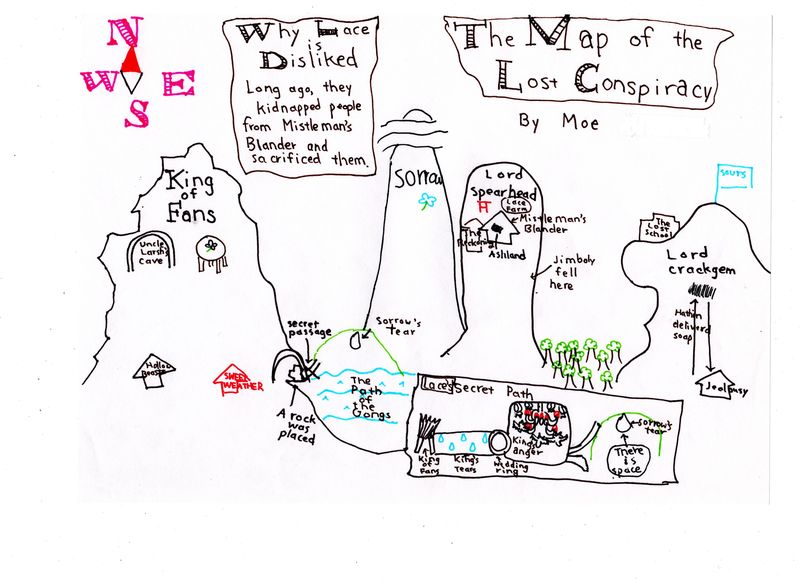 N
W E
S
Why Lace
is
Disliked
Long ago, they
kidnapped people
from Mistleman's
Blander and
sacrificed them.
The Map of the
Lost Conspiracy
By Moe
King
of
Fans
Uncle
Larsh's
cave
Sorrow
Lord
Spearhead
Lace
Farm
Mistleman's
Blander
The
Ashland
Jimboly
fell
here
sours
The
Lost
School
Lord
crackgem
Hathin
deliverd
soap
Jealousy
secret
passage
Sorrow's
Tear
SWEET
WEATHER
A rock
was
placed
The
Path
of
the
Gongs
Lace's Secret Path
King
of
Fans
King's
Tears
Wedding
ring
anger
Sorrow's
tear
There
is
space